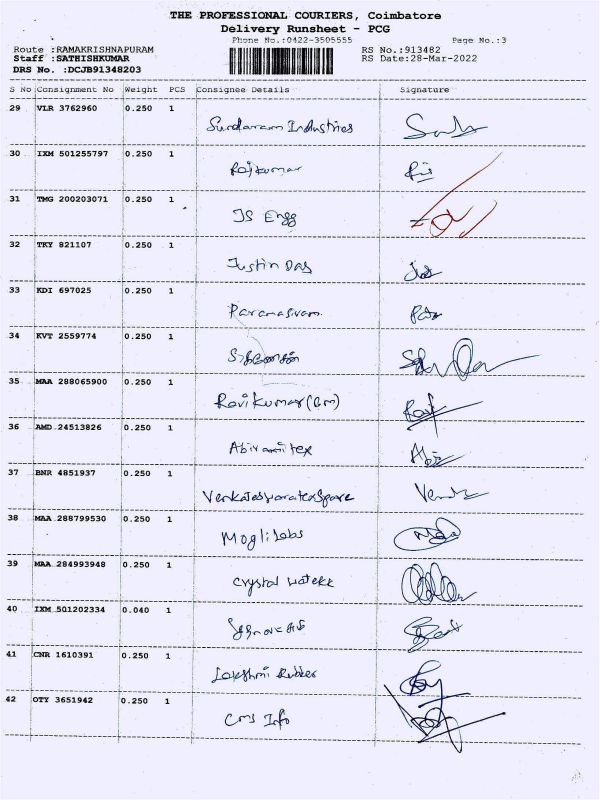 THE PROFESSIONAL COURIERS, Coimbatore
Delivery Runsheet - PCG
Phone No.:0422-3505555 Page No.:3
Route :RAMAKRISHNAPURAM RS No.:913482
Staff :SATHISHKUMAR RS Date:28-Mar-2022
DRS No. :DCJB91348203
S No Consignment No Weight PCS Consignee Details Signature
29 VLR 3762960 0.250 1
Sundaram Industries
30 IXM 501255797 0.250 1
Rajkumar
31 TMG 200203071 0.250 1
JS Engg
32 TKY 821107 0.250 1
Justin Das
33 KDI 697025 0.250 1
Paramasivam
34 KVT 2559774 0.250 1
35 MAA 288065900 0.250 1
Ravi Kumar (Gm)
36 AMD 24513826 0.250 1
Abiramitex
37 BNR 4851937 0.250 1
38 MAA 288799530 0.250 1
Moglilabs
39 MAA 284993948 0.250 1
Crystal
40 IXM 501202334 0.040 1
41 CNR 1610391 0.250 1
Lakshmi Rubber
42 OTY 3651942 0.250 1
Cms Info